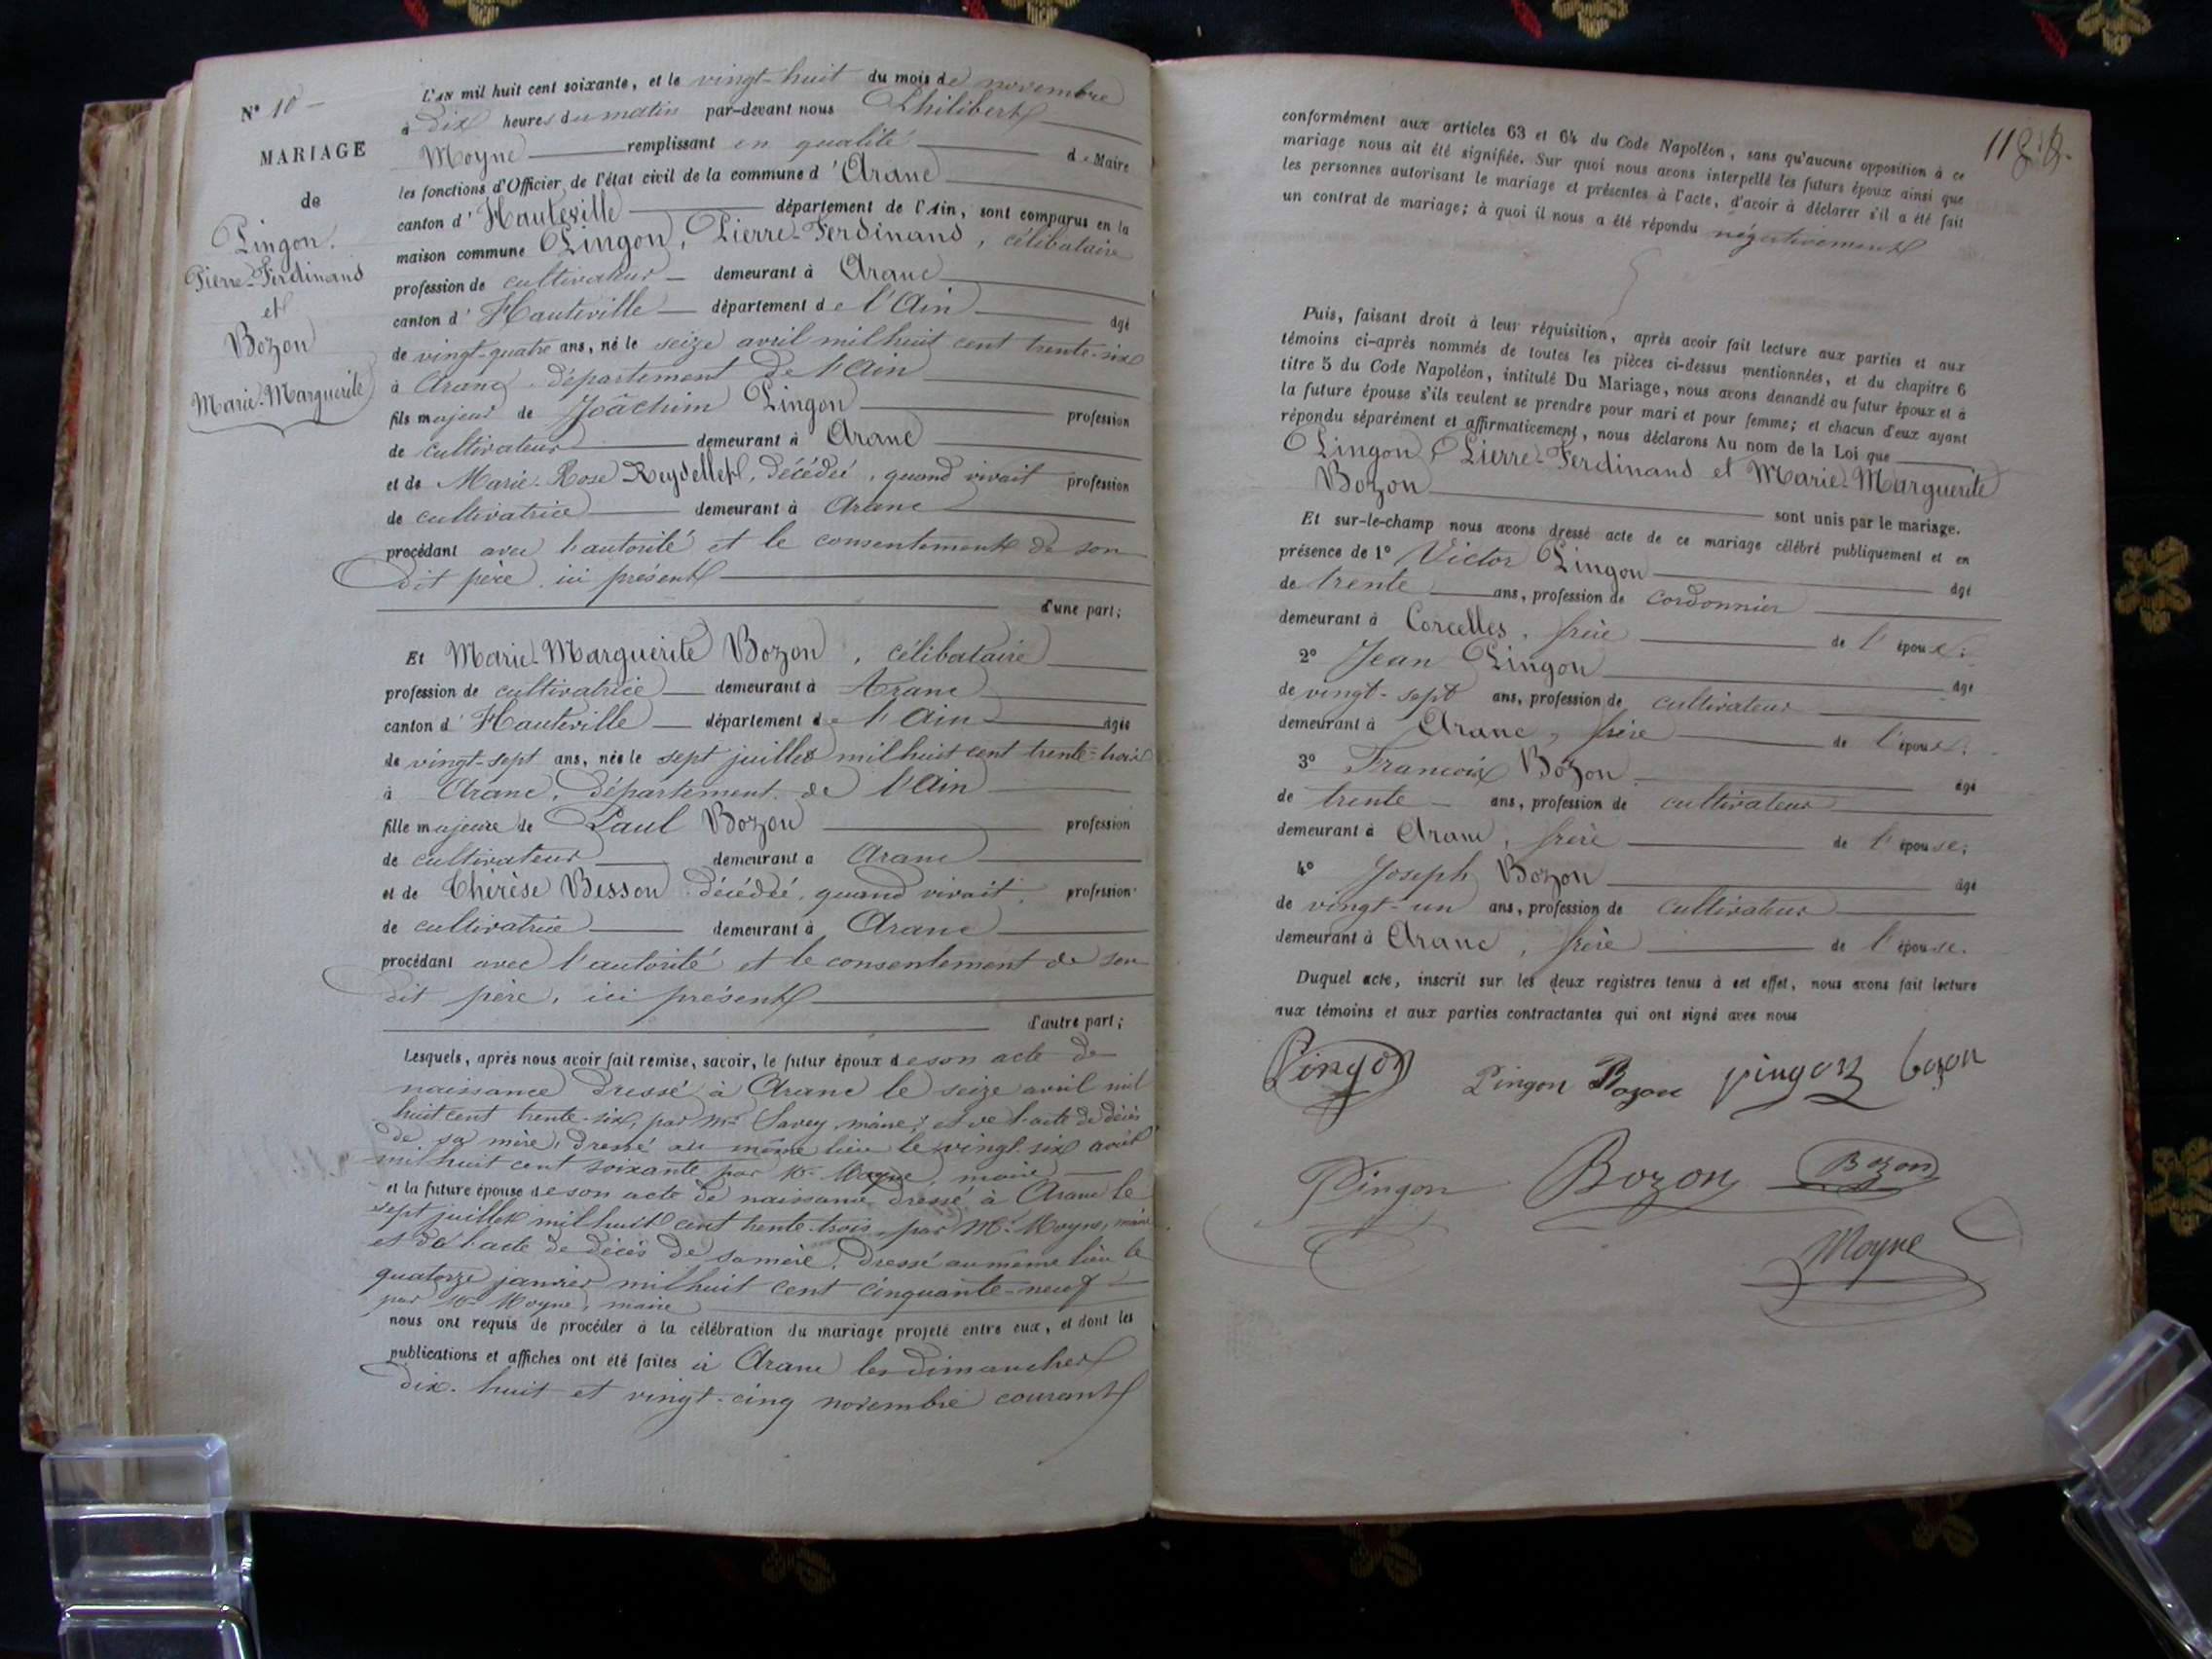 N° 10
MARIAGE
de
Pingon,
Pierre-Ferdinand
et
Bozon
Marie-Marguerite
L'AN mil huit cent soixante, et le vingt-huit du mois de novembre
à dix heures du matin par-devant nous Philibert
Moyne remplissant en qualité de Maire
les fonctions d'Officier de l'état civil de la commune d'Aranc
canton d'Hauteville département de l'Ain, sont comparus en la
maison commune Pingon, Pierre-Ferdinand, célibataire
profession de cultivateur demeurant à Aranc
canton d'Hauteville département de l'Ain âgé
de vingt-quatre ans, né le seize avril mil huit cent trente-six
à Aranc, département de l'Ain
fils majeur de Joâchim Pingon profession
de cultivateur demeurant à Aranc
et de Marie-Rose Reydellet, décédée, quand vivait profession
de cultivatrice demeurant à Aranc
procédant avec l'autorité et le consentement de son
dit père, ici présent
d'une part;
Et Marie-Marguerite Bozon, célibataire
profession de cultivatrice demeurant à Aranc
canton d'Hauteville département de l'Ain âgée
de vingt-sept ans, née le sept juillet mil huit cent trente-trois
à Aranc, département de l'Ain
fille majeure de Paul Bozon profession
de cultivateur demeurant à Aranc
et de Thérèse Besson décédée, quand vivait, profession
de cultivatrice demeurant à Aranc
procédant avec l'autorité et le consentement de son
dit père, ici présent
d'autre part;
Lesquels, après nous avoir fait remise, savoir, le futur époux de son acte de
naissance dressé à Aranc le seize avril mil
huit cent trente-six, par Mr Savey, maire, et de l'acte de décès
de sa mère, dressé au même lieu le vingt-six août
mil huit cent soixante par Mr Moyne, maire
et la future épouse de son acte de naissance dressé à Aranc le
sept juillet mil huit cent trente-trois, par Mr Moyne, maire
et de l'acte de décès de sa mère, dressé au même lieu le
quatorze janvier mil huit cent cinquante-neuf
par Mr Moyne, maire
nous ont requis de procéder à la célébration du mariage projeté entre eux, et dont les
publications et affiches ont été faites à Aranc les dimanches
dix-huit et vingt-cinq novembre courant
118
conformément aux articles 63 et 64 du Code Napoléon, sans qu'aucune opposition à ce
mariage nous ait été signifiée. Sur quoi nous avons interpellé les futurs époux ainsi que
les personnes autorisant le mariage et présentes à l'acte, d'avoir à déclarer s'il a été fait
un contrat de mariage; à quoi il nous a été répondu négativement
Puis, faisant droit à leur réquisition, après avoir fait lecture aux parties et aux
témoins ci-après nommés de toutes les pièces ci-dessus mentionnées, et du chapitre 6
titre 5 du Code Napoléon, intitulé Du Mariage, nous avons demandé au futur époux et à
la future épouse s'ils veulent se prendre pour mari et pour femme; et chacun d'eux ayant
répondu séparément et affirmativement, nous déclarons Au nom de la Loi que
Pingon, Pierre-Ferdinand et Marie-Marguerite
Bozon sont unis par le mariage.
Et sur-le-champ nous avons dressé acte de ce mariage célébré publiquement et en
présence de 1° Victor Pingon âgé
de trente ans, profession de cordonnier
demeurant à Corcelles, frère de l'époux;
2° Jean Pingon âgé
de vingt-sept ans, profession de cultivateur
demeurant à Aranc, frère de l'époux;
3° François Bozon âgé
de trente ans, profession de cultivateur
demeurant à Aranc, frère de l'épouse;
4° Joseph Bozon âgé
de vingt-un ans, profession de cultivateur
demeurant à Aranc, frère de l'épouse.
Duquel acte, inscrit sur les deux registres tenus à cet effet, nous avons fait lecture
aux témoins et aux parties contractantes qui ont signé avec nous
Pingon Pingon Bozon pingon bozon
Pingon Bozon Bozon
Moyne